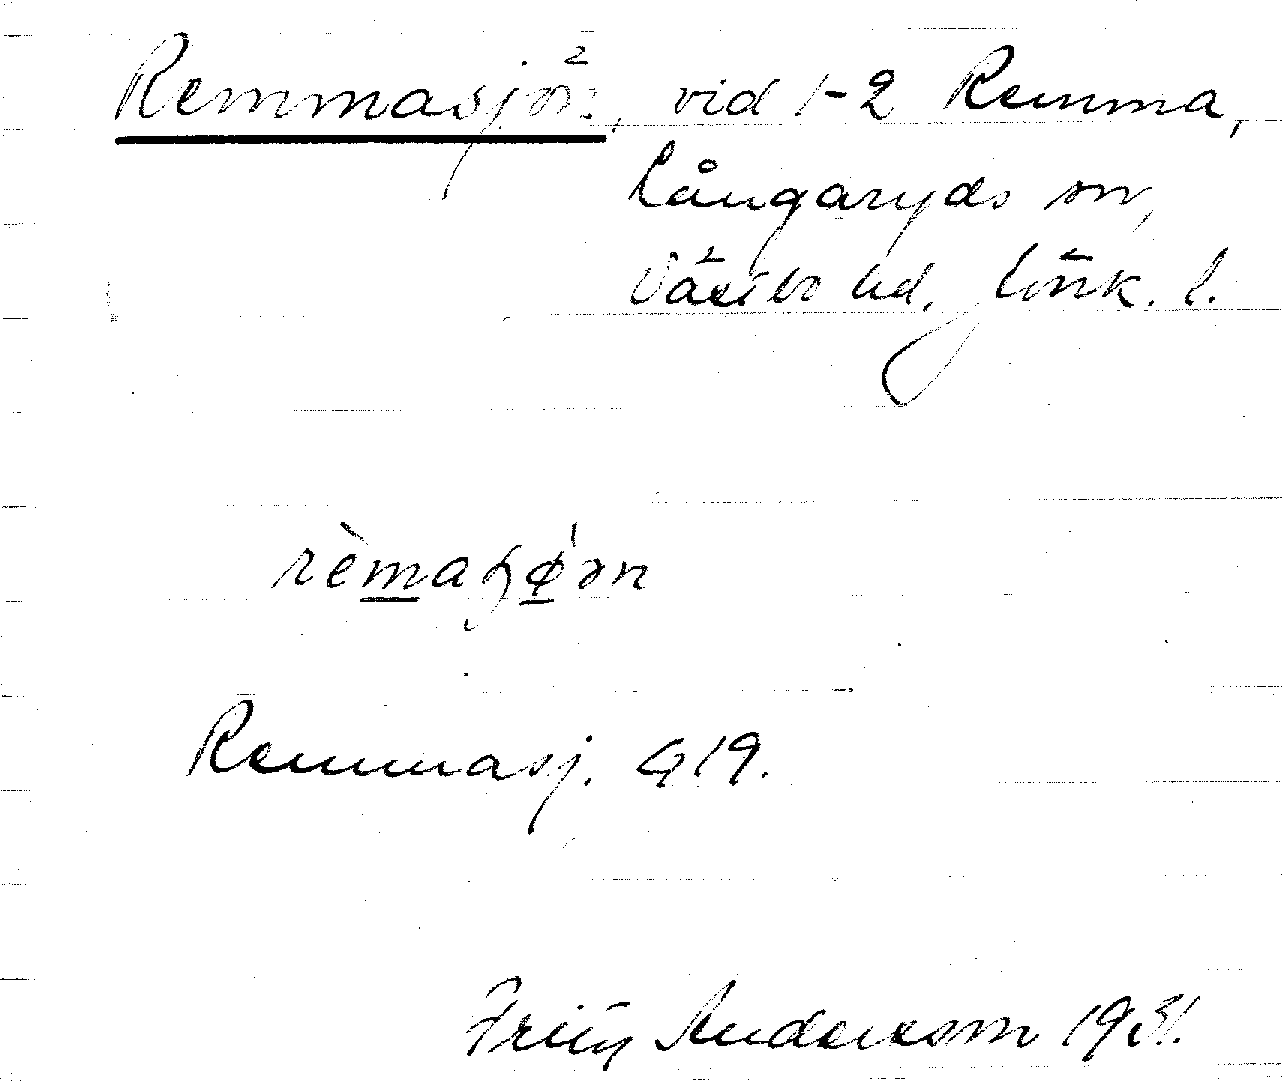 Remmasjön, vid 1-2 Remma,
Långaryds sn,
Västbo hd, Jönk. l.
rèmaɧø̍ən
Remmasj. G19.
Fritz Andersson 1931.